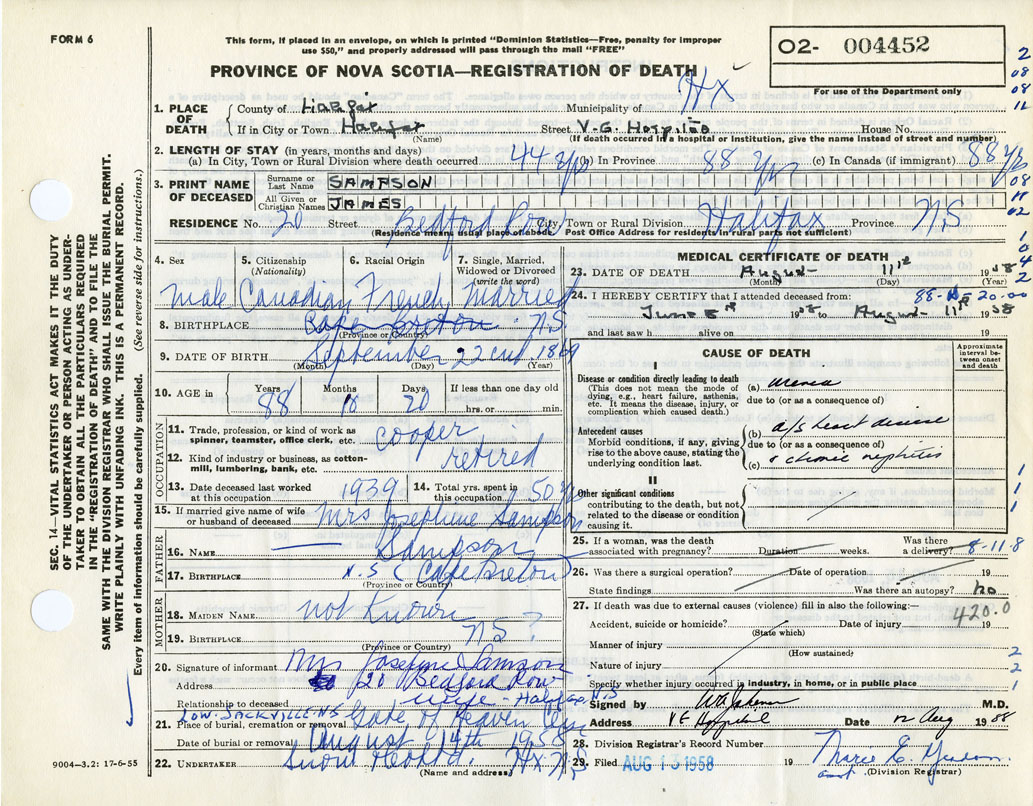 FORM 6
This form, if placed in an envelope, on which is printed "Dominion Statistics—Free, penalty for improper
use $50," and properly addressed will pass through the mail "FREE"
O2- 004452
PROVINCE OF NOVA SCOTIA—REGISTRATION OF DEATH
For use of the Department only
Hx
1. PLACE OF DEATH
County of Halifax Municipality of
If in City or Town Halifax Street V.G. Hospital House No.
(Name) (If death occurred in a hospital or institution, give the name instead of street and number)
2. LENGTH OF STAY (in years, months and days)
(a) In City, Town or Rural Division where death occurred 44 yrs (b) In Province 88 yrs (c) In Canada (if immigrant) 88 yrs
3. PRINT NAME OF DECEASED
Surname or Last Name SAMPSON
All Given or Christian Names JAMES
RESIDENCE No. 20 Street Bedford Row City, Town or Rural Division Halifax Province N.S
(Residence means usual place of abode. Post Office Address for residents in rural parts not sufficient)
4. Sex
male
5. Citizenship (Nationality)
Canadian
6. Racial Origin
French
7. Single, Married, Widowed or Divorced (write the word)
Married
8. BIRTHPLACE Cape Breton N.S
(Province or Country)
9. DATE OF BIRTH September 22nd 1869
(Month) (Day) (Year)
10. AGE in Years 88 Months 10 Days 20 If less than one day old
hrs. or min.
OCCUPATION
11. Trade, profession, or kind of work as
spinner, teamster, office clerk, etc. cooper
12. Kind of industry or business, as cotton-
mill, lumbering, bank, etc. retired
13. Date deceased last worked
at this occupation 1939
14. Total yrs. spent in
this occupation 50 yrs
15. If married give name of wife
or husband of deceased Mrs Josephine Sampson
FATHER
16. NAME Sampson
17. BIRTHPLACE N.S (Cape Breton)
(Province or Country)
MOTHER
18. MAIDEN NAME not Known
19. BIRTHPLACE N S ?
(Province or Country)
20. Signature of informant Mrs Josephine Samson
Address 20 Bedford Row
Relationship to deceased Halifax N.S
LOW. SACKVILLE N.S
21. Place of burial, cremation or removal Gate of Heaven Cem
Date of burial or removal August 14th 1958
22. UNDERTAKER Snow & Co Ltd. Hx N.S
(Name and address)
9004-3.2: 17-6-55
MEDICAL CERTIFICATE OF DEATH
23. DATE OF DEATH August 11th 1958
(Month) (Day)
24. I HEREBY CERTIFY that I attended deceased from: 88-10-20.00
June 5th 1958 to August 11th 1958
and last saw h alive on 19
CAUSE OF DEATH
Approximate interval between onset and death
I
Disease or condition directly leading to death
(This does not mean the mode of
dying, e.g., heart failure, asthenia,
etc. It means the disease, injury, or
complication which caused death.)
(a) uremia
due to (or as a consequence of)
Antecedent causes
Morbid conditions, if any, giving
rise to the above cause, stating the
underlying condition last.
(b) a/s heart disease
due to (or as a consequence of)
(c) & chronic nephritis
II
Other significant conditions
contributing to the death, but not
related to the disease or condition
causing it.
25. If a woman, was the death
associated with pregnancy? Duration weeks. Was there
a delivery? 8-11-8
26. Was there a surgical operation? Date of operation 19
State findings Was there an autopsy? no
27. If death was due to external causes (violence) fill in also the following:—
420.0
Accident, suicide or homicide? Date of injury 19
(State which)
Manner of injury
(How sustained)
Nature of injury
Specify whether injury occurred in industry, in home, or in public place
Signed by M.D.
Address V G Hospital Date 12 Aug 1958
28. Division Registrar's Record Number
29. Filed AUG 13 1958 19
(Division Registrar)
SEC. 14—VITAL STATISTICS ACT MAKES IT THE DUTY
OF THE UNDERTAKER OR PERSON ACTING AS UNDER-
TAKER TO OBTAIN ALL THE PARTICULARS REQUIRED
IN THE "REGISTRATION OF DEATH" AND TO FILE THE
SAME WITH THE DIVISION REGISTRAR WHO SHALL ISSUE THE BURIAL PERMIT.
WRITE PLAINLY WITH UNFADING INK. THIS IS A PERMANENT RECORD.
Every item of information should be carefully supplied. (See reverse side for instructions.)
2
08
08
11
08
11
02
1
0
4
2
1
1
1
2
2
1